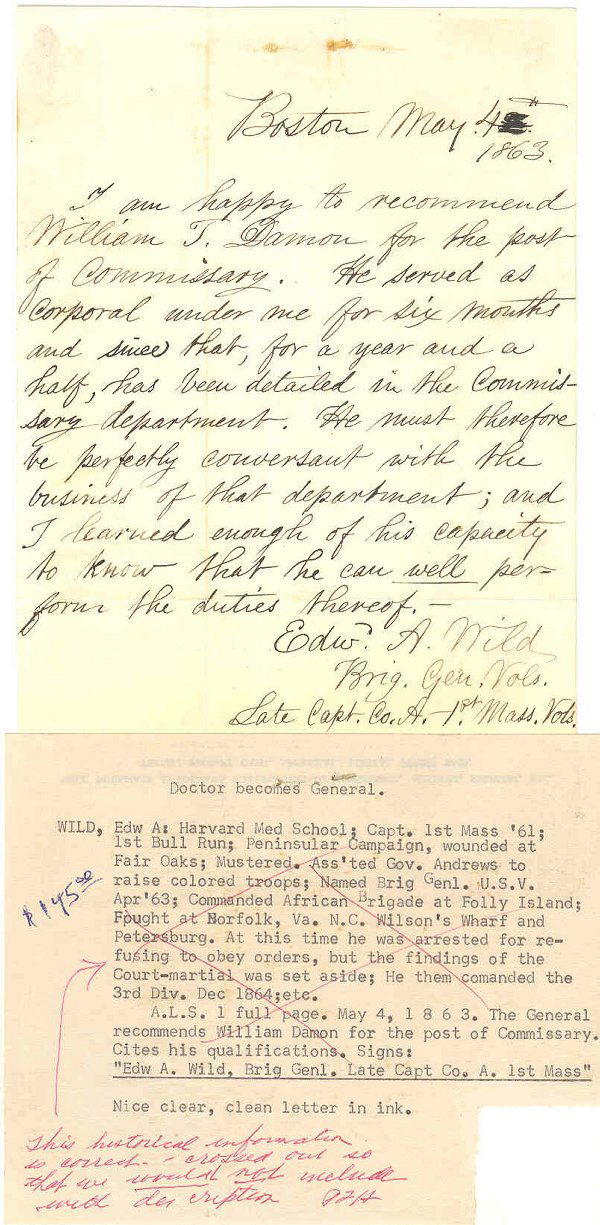 Boston May. 4th
1863.
I am happy to recommend
William T. Damon for the post
of Commissary. He served as
Corporal under me for six months
and since that, for a year and a
half, has been detailed in the Commis-
sary department. He must therefore
be perfectly conversant with the
business of that department; and
I learned enough of his capacity
to know that he can well per-
form the duties thereof. —
Edwd. A. Wild
Brig. Gen. Vols.
Late Capt. Co. A. - 1st Mass. Vols.
Doctor becomes General.
WILD, Edw A: Harvard Med School; Capt. 1st Mass '61;
1st Bull Run; Peninsular Campaign, wounded at
Fair Oaks; Mustered. Ass'ted Gov. Andrews to
raise colored troops; Named Brig Genl. U.S.V.
Apr'63; Commanded African Brigade at Folly Island;
Fought at Norfolk, Va. N.C. Wilson's Wharf and
Petersburg. At this time he was arrested for re-
fusing to obey orders, but the findings of the
Court-martial was set aside; He them comanded the
3rd Div. Dec 1864;etc.
A.L.S. 1 full page. May 4, 1 8 6 3. The General
recommends William Damon for the post of Commissary.
Cites his qualifications. Signs:
"Edw A. Wild, Brig Genl. Late Capt Co. A. 1st Mass"
Nice clear, clean letter in ink.
$145.00
This historical information
is correct - crossed out so
that we would not include
with description